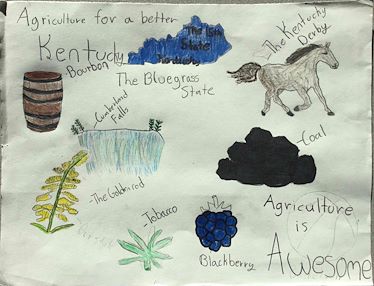 Agriculture for a better
Kentucky
The 15th
State
Kentucky
The Kentucky
Derby
Bourbon
The Bluegrass
State
Cumberland
Falls
-Coal
-The Goldenrod
-Tobacco
Blackberry
Agriculture
is
Awesome